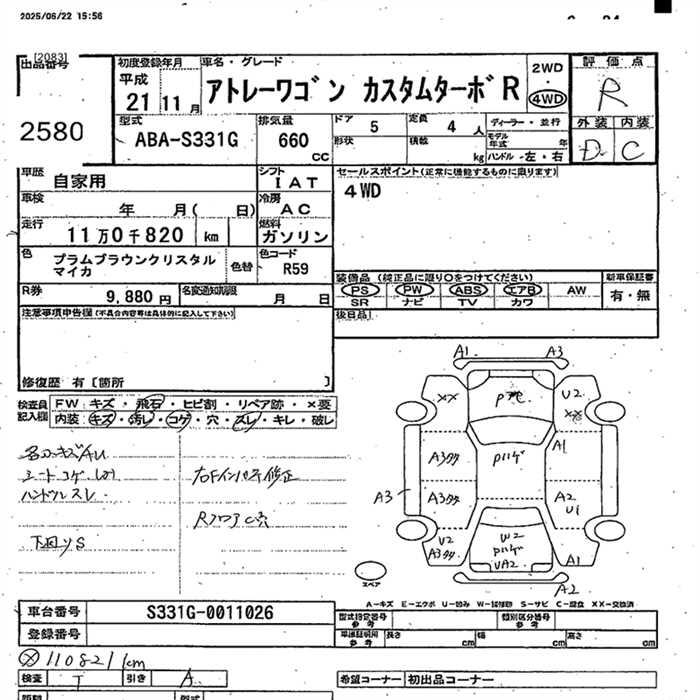 2025/06/22 15:56
[2083]
出品番号
2580
初度登録年月
平成
21 11月
車名・グレード
アトレーワゴン カスタムターボR
2WD
・
4WD
評価点
R
外装 内装
D C
型式
ABA-S331G
排気量
660
CC
ドア 5
定員 4 人
形状
積載 kg
ディーラー・並行
モデル年式 年
ハンドル・左・右
車歴
自家用
シフト
IAT
車検
年 月( 日)
冷房
AC
走行
11万0千820 km
燃料
ガソリン
色
プラムブラウンクリスタル
マイカ
色替
色コード
R59
R券
9,880円
名変通知期限
月 日
セールスポイント(正常に機能するものに限ります)
4WD
装備品 (純正品に限り○をつけてください)
PS PW ABS エアB AW
SR ナビ TV カワ
新車保証書
有・無
後日品
注意事項申告欄(不具合内容等は具体的に記入して下さい)
修復歴 有〔箇所 〕
検査員
記入欄
FW:キズ・飛石・ヒビ割・リペア跡・×要
内装:キズ・汚レ・コゲ・穴・スレ・キレ・破レ
シートコゲ
ハンドルスレ
下回りS
右Fインパネ修正
A1 A3
XX
U2
XX
A1
Pハゲ
A3
A2
U1
U2
W2
Pハゲ
UA2
A1
A2
スペア
A-キズ E-エクボ U-凹み W-補修跡 S-サビ C-腐食 XX-交換済
車台番号
S331G-0011026
登録番号
型式指定番号
参考
類別区分番号
参考
車庫証明用
参考
長さ cm
幅 cm
高さ cm
110821km
検査
T
引き
A
希望コーナー
初出品コーナー